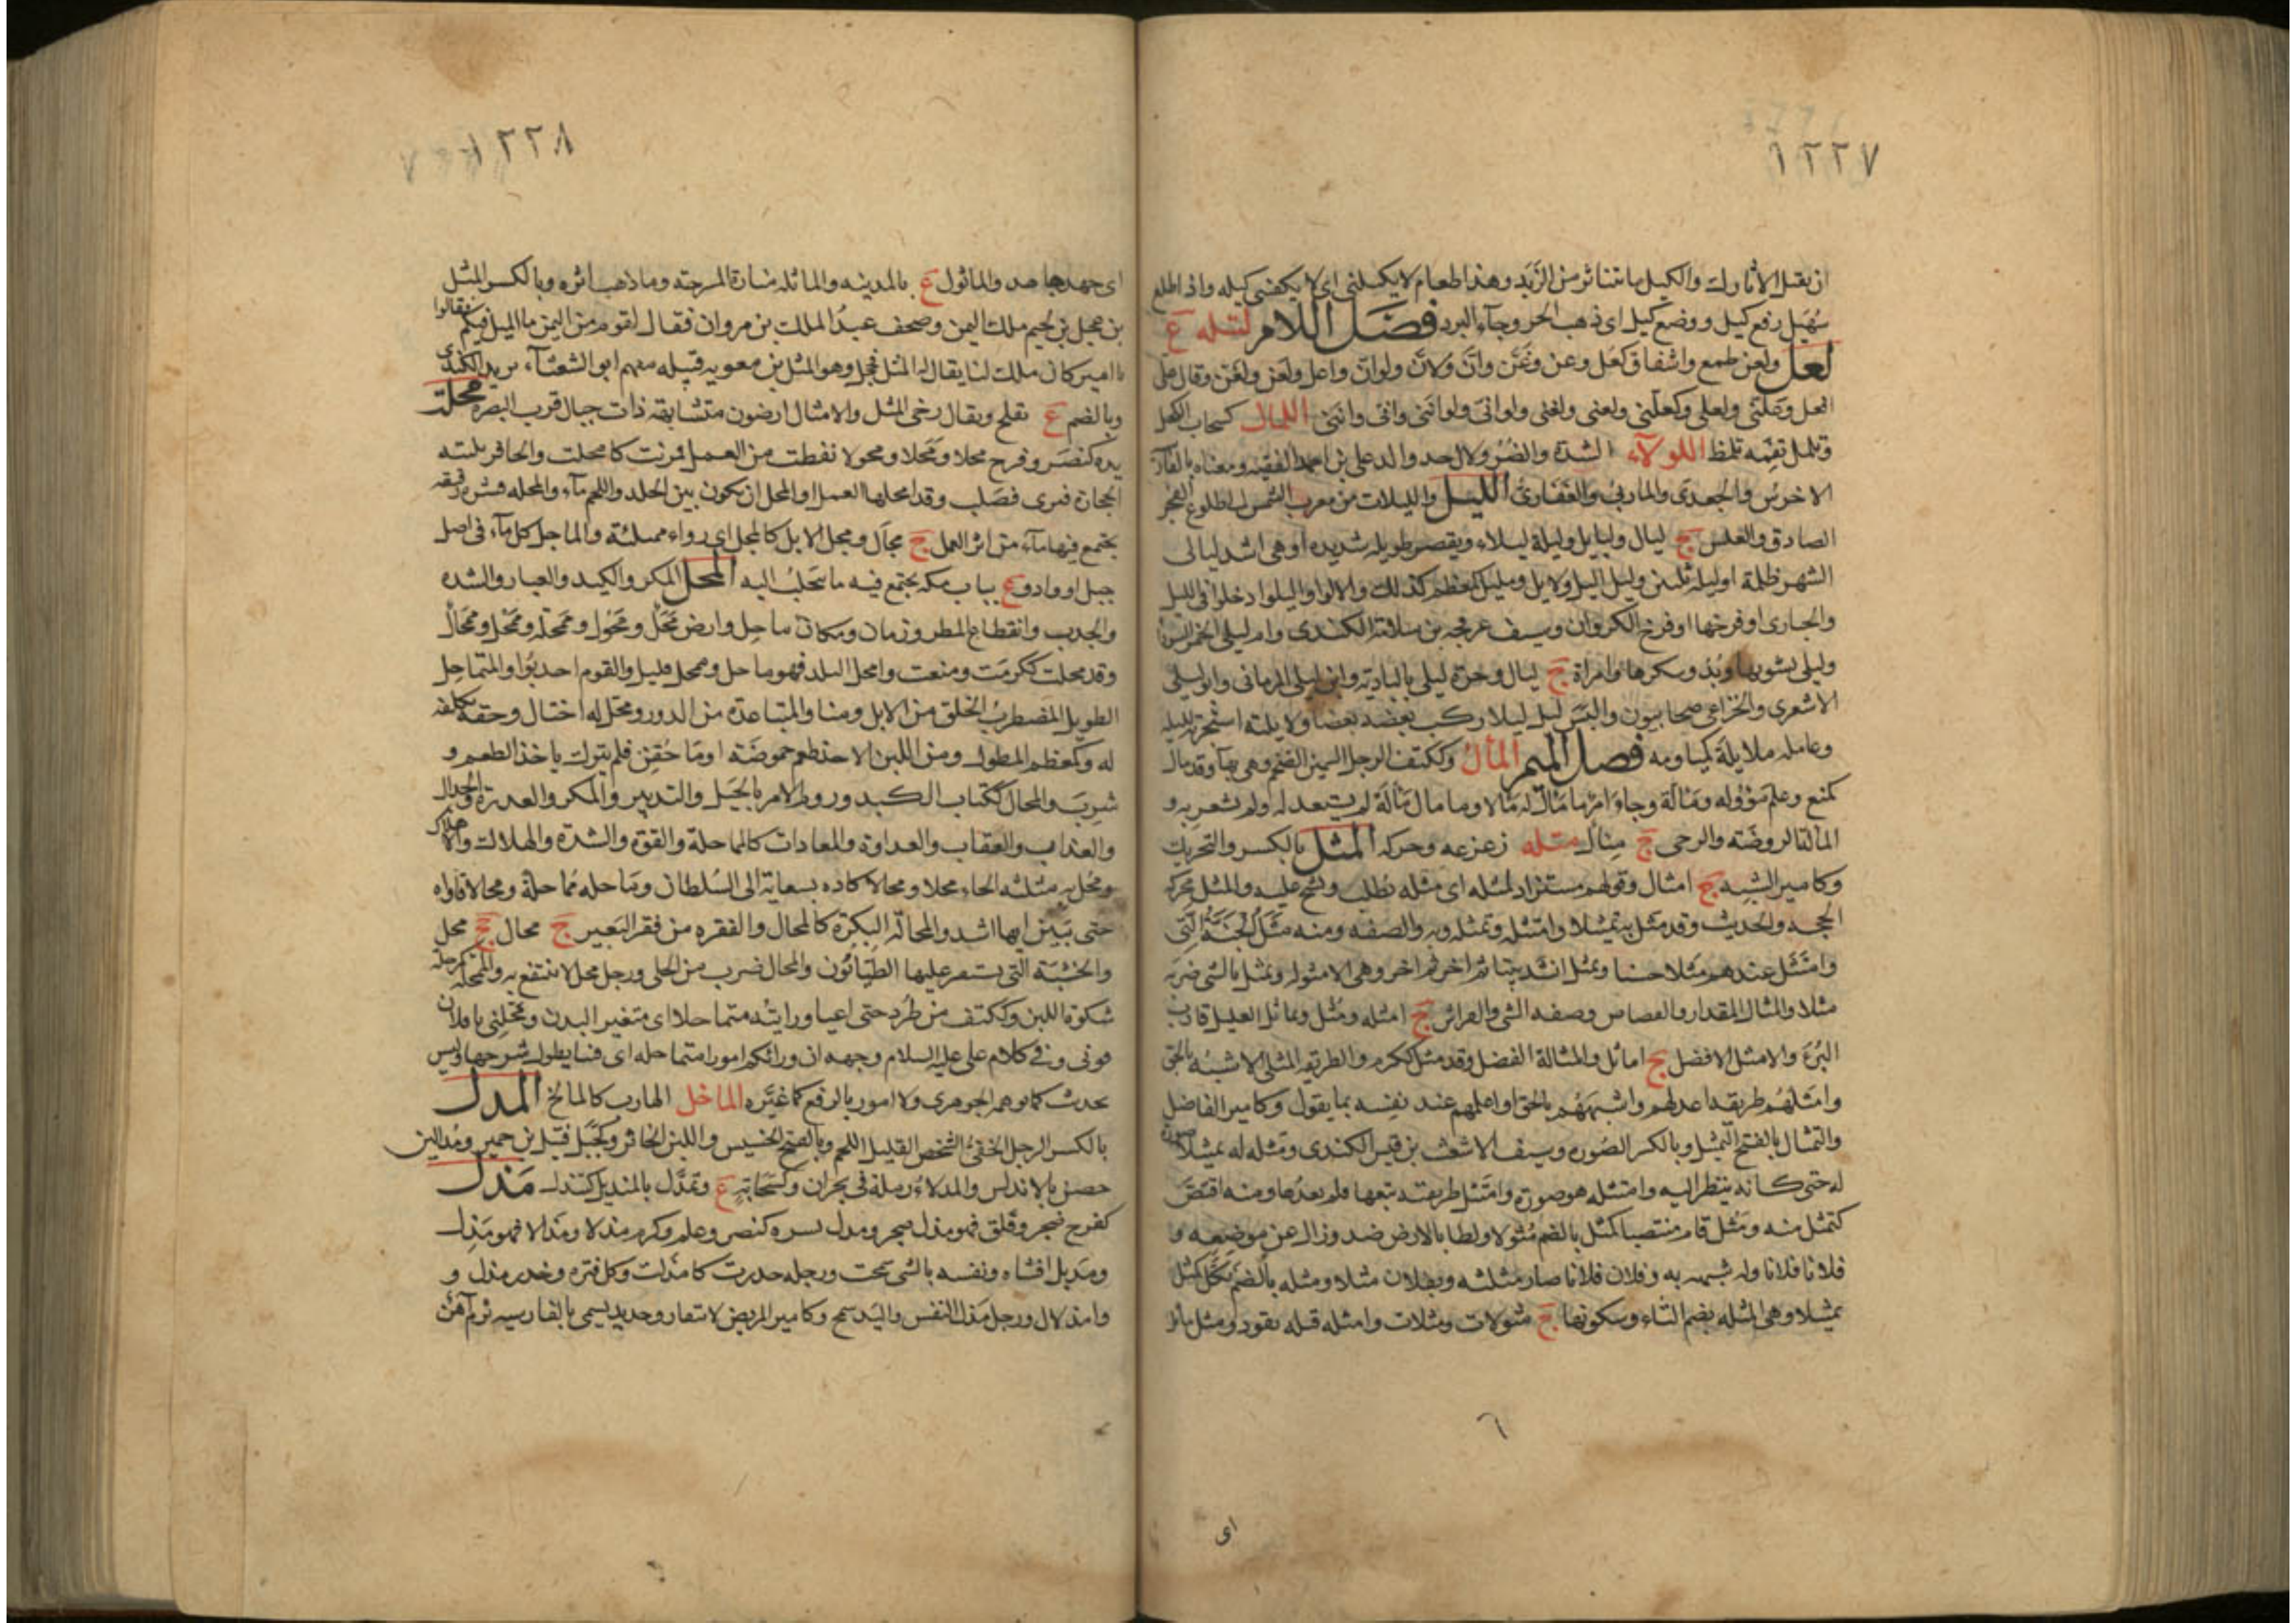 ١٢٢٧
ان يقبل الا والكيل ما تناثر من الزَّند وهذا طعام لا يكيلنى اى لا يكفنى كيله واذا طلع
سُهَيل رفع كيل ووضع كيل اى ذهب الحر وجآء البرد فصَل اللام لتله ع
لعل ولعن طمع واشفاق كعُل وعن وغَنَّ وانَّ ولانَّ ولوانّ ولعن ولغَن وقال
وعلّنى ولعلى ولعلّنى ولعنى ولغنى ولوانّى ولوانَّنى وانى وانَّنى اللعال كسحاب الكحل
وتلمل بفمه تلمظ اللولآء الشدة والضُر ولال جد والد على بن احمد الفقيه ومعناه بالفار
الاخرس والجعدى والمازنى والغفارى الليل والليلات من مغرب الشمس الى طلوع الفجر
الصادق والشمس ج ليال وليايل وليلة ليلاء ويقصر طويله شديده او هى اشد ليالى
الشهر ظلمة او ليلة ثلثين وليل اليل ولايل ومليل كمعظم كذلك والالوا واليلوا دخلوا فى الليل
والحبارى او فرخها او فرخ الكروان وسيف عرفجه بن سلامة الكندى وام ليلى الخمر السودا
وليلى نشوتها وبدو سكرها وامراة ج ليال وحرة ليلى بالبادية وابن ليلى المزمانى وابو ليلى
الاشعرى والخزاعى صحابيون واليَس ليل ليلا ركب بعضه بعضا ولايلته استجرته لليله
وعامله ملايلة كمياومه فصل الميم المألُ وككتف الرجل السمين الضخم وهى بهآ وقد مال
كمنع وعلم مؤوله ومألة وجاءَ امرٌ ما مأل له مألا وما مال مَألَه لم يستعد له ولم يشعر به و
المألة الروضة والرحى ج مئال متله زعزعه وحركه المثل بالكسر والتحريك
وكامير الشبه ج امثال وقولهم مستزاد لمثله اى مثله يُطلب ويُشح عليه والمثل محركة
الحجه والحديث وقد مثل به تمثيلا وامتثله وتمثله وبه والصفه ومنه مثَلُ الجنَّة الَّتِى
وامتَثَل عندهم مثلا حسنا وتمثل انشد بيتا ثم اخر ثم اخر وهى الامثوله وتمثل بالشى ضربه
مثلا والمثال المقدار والقصاص وصفه الشى والفراش ج امثله ومُثُل وتماثل العليل قارب
البُرءَ والامثل الافضل ج اماثل والمثالة الفضل وقد مثل ككرم والطريقه المثلى الاشبَه بالحق
وامثلهُم طريقه اعدلهم واشبهَهُم بالحق او اعلمهم عند نفسه بما يقول وكامير الفاضل
والتمثال بالفتح التمثيل وبالكسر الصُوره وسيف الاشعث بن قيس الكندى ومثله له تمثيلا صوره
له حتى كانه ينظر اليه وامتثله هو صوّره وامتثل طريقته تبعها فلم يعدُها ومنه اقتَصَّ
كتمثل منه ومَثُل قام منتصبا كمثل بالضم مُثُولا ولطا بالارض ضد وزال عن موضعه و
فلانا فلانا وله شبهه به وفلان فلانا صار مثله وبفلان مثلا ومثله بالضم نكَّل كمثَّل
تمثيلا وهى المثله بضم الثاء وسكونها ج مثولات ومثلات وامثله قتله بقود ومثل ماثل
٦
اى
١٢٢٨
اى جهد جاهد والماثول ع بالمدينه والماثله منارة المسرجة وما ذهب اثره وبالكسر المثل
بن عجل بن لجيم ملك اليمن وصحف عبدُ الملك بن مروان فقال لقوم من اليمن ما الميل فيكم فقالوا
يا امير كان ملك لنا يقال له المثل فخجل وهو المثل بن معويه قبيله منهم ابو الشعثاء يزيد الكندى
وبالضم ع بفلج ويقال رخى المثل والامثال ارضون متشابهة ذات جبال قرب البصره مجلت
يده كنصَر وفرح مجلا ومَجَلا ومجولا نفطت من العمل فمرنت كامجلت والحافر نكبته
الحجارة فبرى فصلب وقد امجلها العمل او المجل ان يكون بين الجلد واللحم مآء والمجله قشره رقيقه
يجتمع فيها مآء من اثر العمل ج مجَال ومجل الابل كالمجل اى رواء ممتلئة والماجل كل مآء فى اصل
جبل او واد وع بباب مكه يجتمع فيه ما يتحلب اليه المحل المكر والكيد والغبار والشده
والجدب وانقطاع المطر وزمان ومكان ماحِل وارض مَحْل ومَحُول ومَحْلَة ومُمْحِل ومِمْحال
وقد محلت ككرمَت ومنعت وامحل البلد فهو ماحل وممحل قليل والقوم اجدبُوا والمتماحِل
الطويل المضطربُ الخلق من الابل ومنا والمتباعدة من الدور ومحل له احتال وحقه تكلفه
له وكمعظم المطول ومن اللبن الاخذ طعم حموضَة او ما حُقِن فلم يترك ياخذ الطعم و
شرِبَ والمحال ككتاب الكيد وروم الامر بالحِيَل والتدبير والمكر والقدرة والجدال
والعذاب والعقاب والعداوة والمعادات كالمماحلة والقوة والشدة والهلاك والاهلاك
ومحُل به مثلثه الحاء محلا ومحالا كاده بسعاية الى السُلطان وماحله مُماحلة ومحالا قاواه
حتى تبيَّن ايهما اشد والمحالَة البكرَة كالمحال والفقره من فقر البَعير ج محال جج محل
والخشبَة التى يستقر عليها الطيّانُون والمحال ضرب من الحلى ورجل محل لا ينتفع به والممحلة كمرحلة
شكوة اللبن وككتف من طُرِد حتى اعيا ورايته متماحلا اى متغير البدن ومحلنى يا فلان
قونى وفى كلام على عليه السلام وجهه ان ورائكم امورا متماحله اى فتنا يطول شرحها وليس
بحديث كما توهمه الجوهرى ولا امور بالرفع كما غيَّره الماخل الهارب كالمالخ المدل
بالكسر الرجل الخفىُّ الشخص القليل اللحم وبالفتح الخسيس واللبن الخاثر وكجبَل قيل بن حمير ومُدالين
حصن بالاندلس والمدلاءُ رملة فى بحران وكسَحابَةٍ ع وتمدَّل بالمنديل كتندل مَذل
كفرح ضجر وقلق فهو مذل ضجر ومذل بسره كنصر وعلم وكرم مذلا ومذالا فهو مَذِل
ومذيل افشاه ونفسه بالشى سمحت ورجله خدرت كامذلت وكل فتره وخدر مذل و
وامذلال ورجل مذل النفس واليَد سمح وكامير المريض لا يتقار وحديد يسمى بالفارسيه نرم آهَن